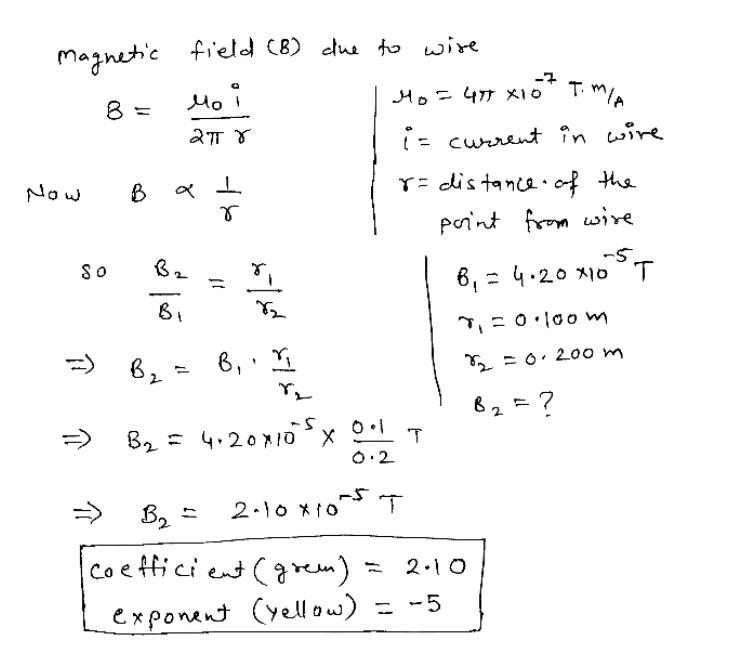 magnetic field (B) due to wire
B = μ₀ i / 2π r
μ₀ = 4π × 10⁻⁷ T.m/A
i = current in wire
r = distance of the
point from wire
Now B ∝ 1/r
so B₂/B₁ = r₁/r₂
B₁ = 4.20 × 10⁻⁵ T
r₁ = 0.100 m
r₂ = 0.200 m
B₂ = ?
⇒ B₂ = B₁ · r₁/r₂
⇒ B₂ = 4.20 × 10⁻⁵ × 0.1/0.2 T
⇒ B₂ = 2.10 × 10⁻⁵ T
coefficient (green) = 2.10
exponent (yellow) = -5